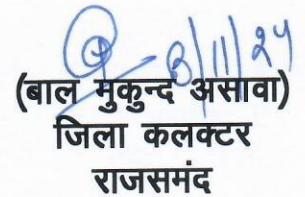 8/11/24
(बाल मुकुन्द असावा)
जिला कलक्टर
राजसमंद